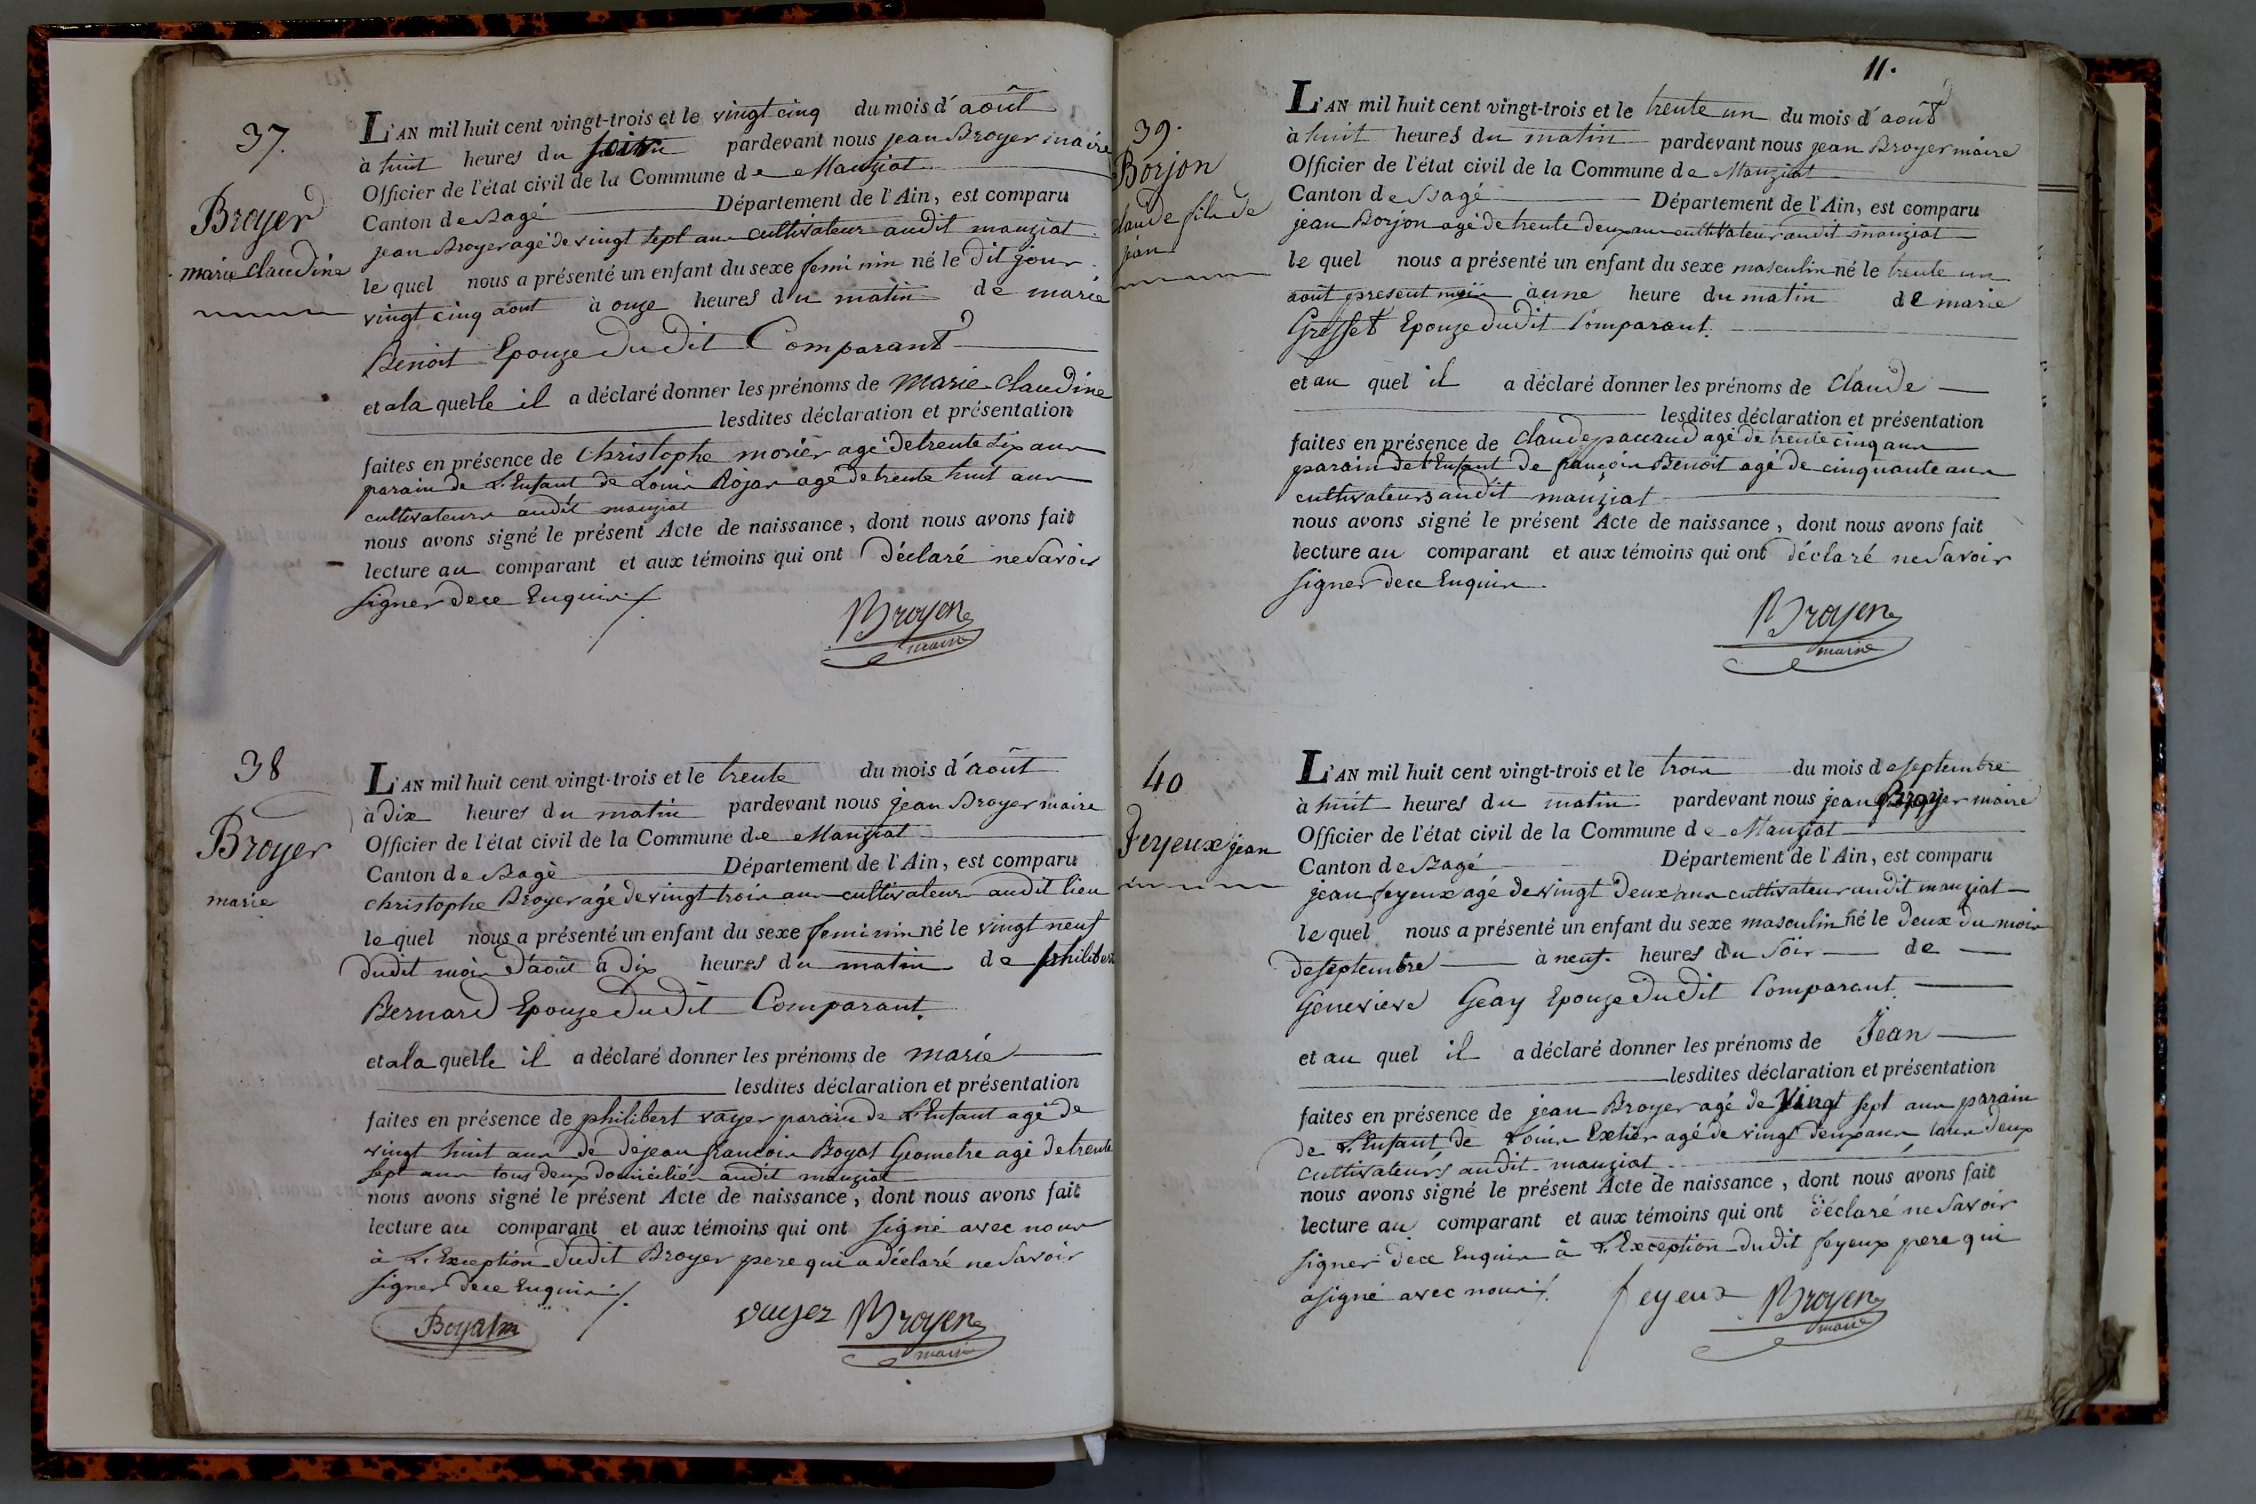 37.
Broyer
marie Claudine
L'AN mil huit cent vingt-trois et le vingt cinq du mois d'août
à huit heures du soir pardevant nous jean Broyer maire
Officier de l'état civil de la Commune de Manziat
Canton de Bagé Département de l'Ain, est comparu
jean Broyer agé de vingt sept ans cultivateur audit manziat
le quel nous a présenté un enfant du sexe feminin né le dit jour
vingt cinq aout à onze heures du matin de marie
Benoit Epouze dudit Comparant
et a la quelle il a déclaré donner les prénoms de marie Claudine
lesdites déclaration et présentation
faites en présence de Christophe morier agé de trente six ans
parain de L'Enfant de Louis Rojar agé de trente huit ans
cultivateurs audit manziat
nous avons signé le présent Acte de naissance, dont nous avons fait
lecture au comparant et aux témoins qui ont déclaré ne Savoir
signer de ce Enquis
Broyer
maire
38
Broyer
marie
L'AN mil huit cent vingt-trois et le trente du mois d'août
à dix heures du matin pardevant nous jean Broyer maire
Officier de l'état civil de la Commune de Manziat
Canton de Bagé Département de l'Ain, est comparu
christophe Broyer agé de vingt trois ans cultivateur audit lieu
le quel nous a présenté un enfant du sexe feminin né le vingt neuf
dudit mois d'août à dix heures du matin de philiber
Bernard Epouze dudit Comparant.
et a la quelle il a déclaré donner les prénoms de marie
lesdites déclaration et présentation
faites en présence de philibert vayer parain de L'Enfant agé de
vingt huit ans de dejean francois Boyat Geometre agé de trente
sept ans tous deux domiciliés audit manziat
nous avons signé le présent Acte de naissance, dont nous avons fait
lecture au comparant et aux témoins qui ont signé avec nous
à L'Exception dudit Broyer pere qui a déclaré ne Savoir
signer de ce Enquis
Boyat
vayer
Broyer
maire
11.
39.
Borjon
claude fils de
jean
L'AN mil huit cent vingt-trois et le trente un du mois d'août
à huit heures du matin pardevant nous jean Broyer maire
Officier de l'état civil de la Commune de Manziat
Canton de Bagé Département de l'Ain, est comparu
jean Borjon agé de trente deux ans cultivateur audit manziat
le quel nous a présenté un enfant du sexe masculin né le trente un
août present mois à une heure du matin de marie
Gresset Epouze dudit Comparant.
et au quel il a déclaré donner les prénoms de Claude
lesdites déclaration et présentation
faites en présence de claude paccaud agé de trente cinq ans
parain de l'Enfant de françois Benoit agé de cinquante ans
cultivateurs audit manziat
nous avons signé le présent Acte de naissance, dont nous avons fait
lecture au comparant et aux témoins qui ont déclaré ne Savoir
signer de ce Enquis.
Broyer
maire
40
feyeux jean
L'AN mil huit cent vingt-trois et le trois du mois de septembre
à huit heures du matin pardevant nous jean Broyer maire
Officier de l'état civil de la Commune de Manziat
Canton de Bagé Département de l'Ain, est comparu
jean feyeux agé de vingt deux ans cultivateur audit manziat
le quel nous a présenté un enfant du sexe masculin né le deux du mois
de septembre à neuf heures du soir de
Genevieve Geay Epouze dudit Comparant.
et au quel il a déclaré donner les prénoms de Jean
lesdites déclaration et présentation
faites en présence de jean Broyer agé de vingt sept ans parain
de L'Enfant de Louis Extier agé de vingt deux ans, tous deux
cultivateurs audit manziat
nous avons signé le présent Acte de naissance, dont nous avons fait
lecture au comparant et aux témoins qui ont déclaré ne Savoir
signer de ce Enquis à L'Exception dudit feyeux pere qui
a signé avec nous
feyeux
Broyer
maire